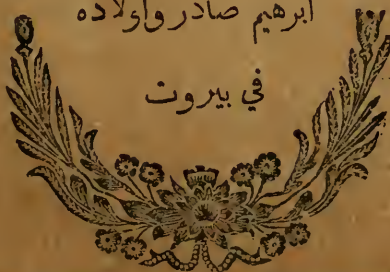 ابرهيم صادر واولاده
في بيروت